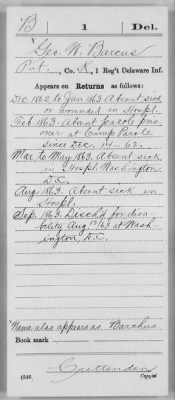 B 1 Del.
Geo. W. Barcus
Pvt., Co. K, 1 Reg't Delaware Inf.
Appears on Returns as follows:
Dec. 1862 to Jan 1863. Absent sick
or wounded in Hospl.
Feb. 1863. Absent parole pris
oner at Camp Parole
since Dec. 14-62.
Mar to May 1863. Absent sick
in Hospl. Washington
D.C.
Aug. 1863. Absent sick in
Hospl.
Sep. 1863. Disch'd for disa
bility Aug 15/63 at Wash
ington, D.C.
Name also appears as Barchus
Book mark
Crittenden
(546) Copyist.